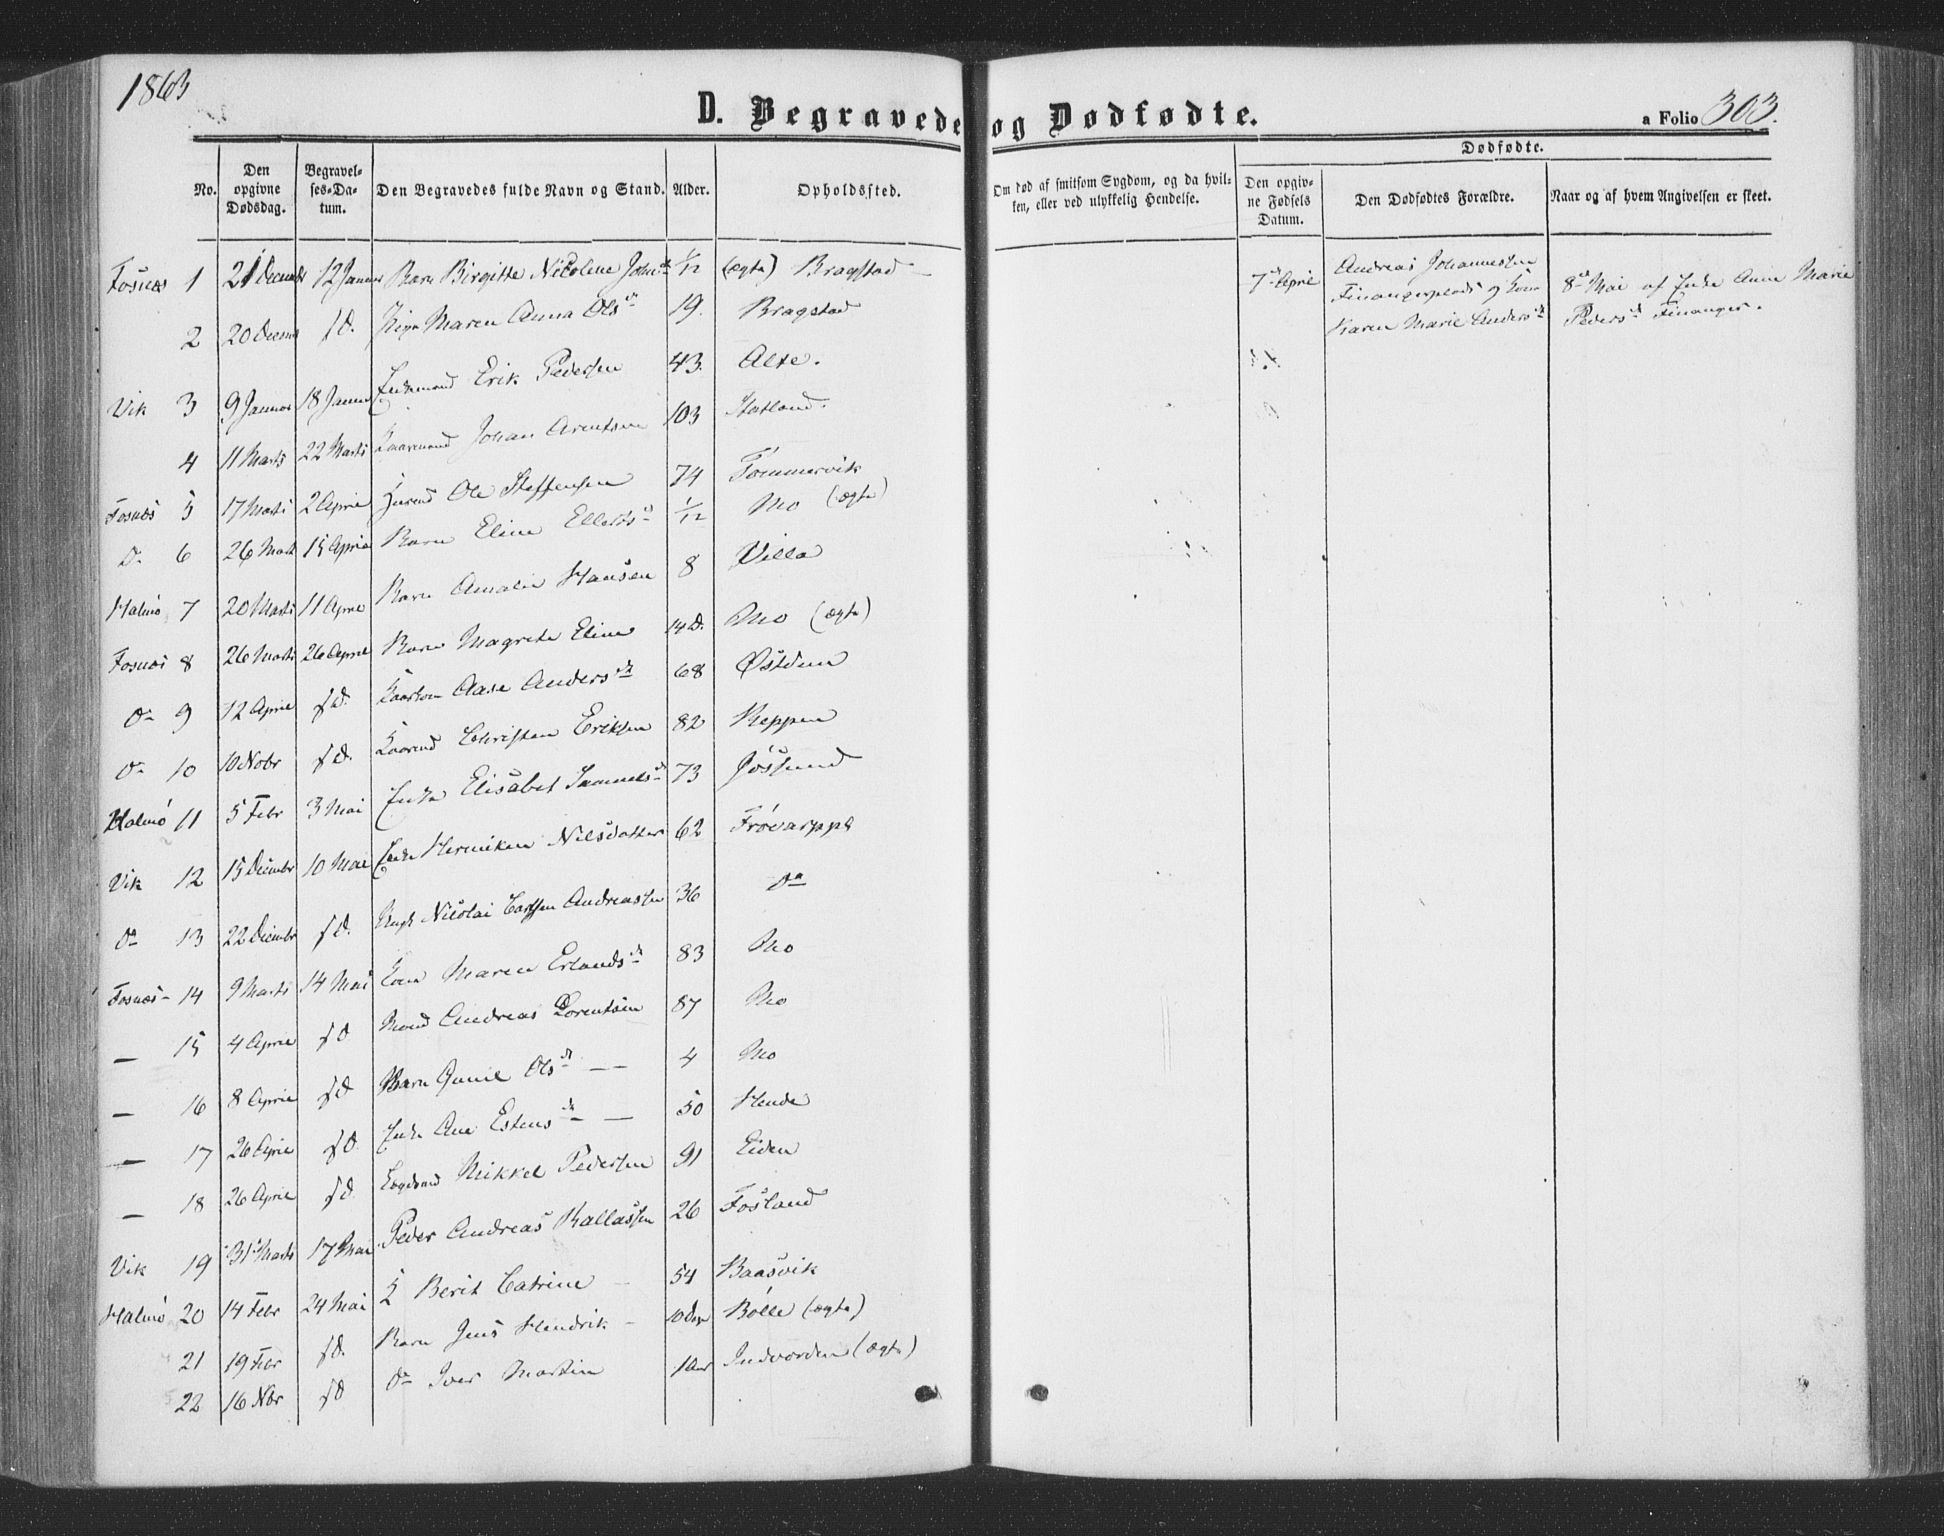 1863
D. Begravede og Dødfødte.
a Folio 303.
No.
Den opgivne Dødsdag.
Begravelses-Datum.
Den Begravedes fulde Navn og Stand.
Alder.
Opholdssted.
Om død af smitsom Sygdom, og da hvilken, eller ved ulykkelig Hendelse.
Dødfødte.
Den opgivne Fødsels Datum.
Den Dødfødtes Forældre.
Naar og af hvem Angivelsen er skeet.
Fosnæs 1 21 Decembr 12 Januar Barn Birgitte Nicoline 1/12 (ægte) Bragstad
2 20 Decembr s.D. Pige Maren Anna Olsd 19. Bragstad
Vik 3 9 Januar 18 Januar Enkemand Erik Pedersen 43. Alte.
4 11 Marts 22 Marts Johan Arentsen 103 Hatland.
Fosnæs 5 17 Marts 2 April Ole Steffensen 74 Tømmervik
D. 6 26 Marts 15 April Barn Eline 1/12 Mo (ægte)
Halmø 7 20 Marts 11 April Barn Amalie Hansen 8 Villa
Fosnæs 8 26 Marts 26 April Barn Magrete Eline 14 D. Mo (ægte)
Do 9 12 April s.D. Aase Andersd 68
Do 10 10 Nobr s.D. Christen Eriksen 82 Reppen
Halmø 11 5 Febr 3 Mai Enke Elisabet Samuelsd 73 Jøssund
Vik 12 15 Decembr 10 Mai Enke Nilsdatter 62
Do 13 22 Decembr s.D. Nicolai Andreassen 36 Do
Fosnæs 14 9 Marts 14 Mai Kone Maren Erlandsd 83 Mo
— 15 4 April s.D. Mand Andreas Lorentsen 87 Mo
— 16 8 April s.D. Barn Gunil Olsd — — 4 Mo
— 17 26 April s.D. Enke Ane Estensd — 50
— 18 26 April s.D. Mikkel Pedersen 91 Eiden
Vik 19 31 Marts 17 Mai Peder Andreas 26 Fosland
Halmø 20 14 Febr 24 Mai Berit Catrine 54 Baasvik
21 19 Febr s.D. Barn Jens Hendrik 10 Dage Bølle (ægte)
22 16 Nbr s.D. Do Iver Martin 1 Aar Indvorden (ægte)
7de April
Andreas Johannessen
og Kone
Karen Marie Andersd
8de Mai af Enke Anne Marie
Pedersd Finanger.